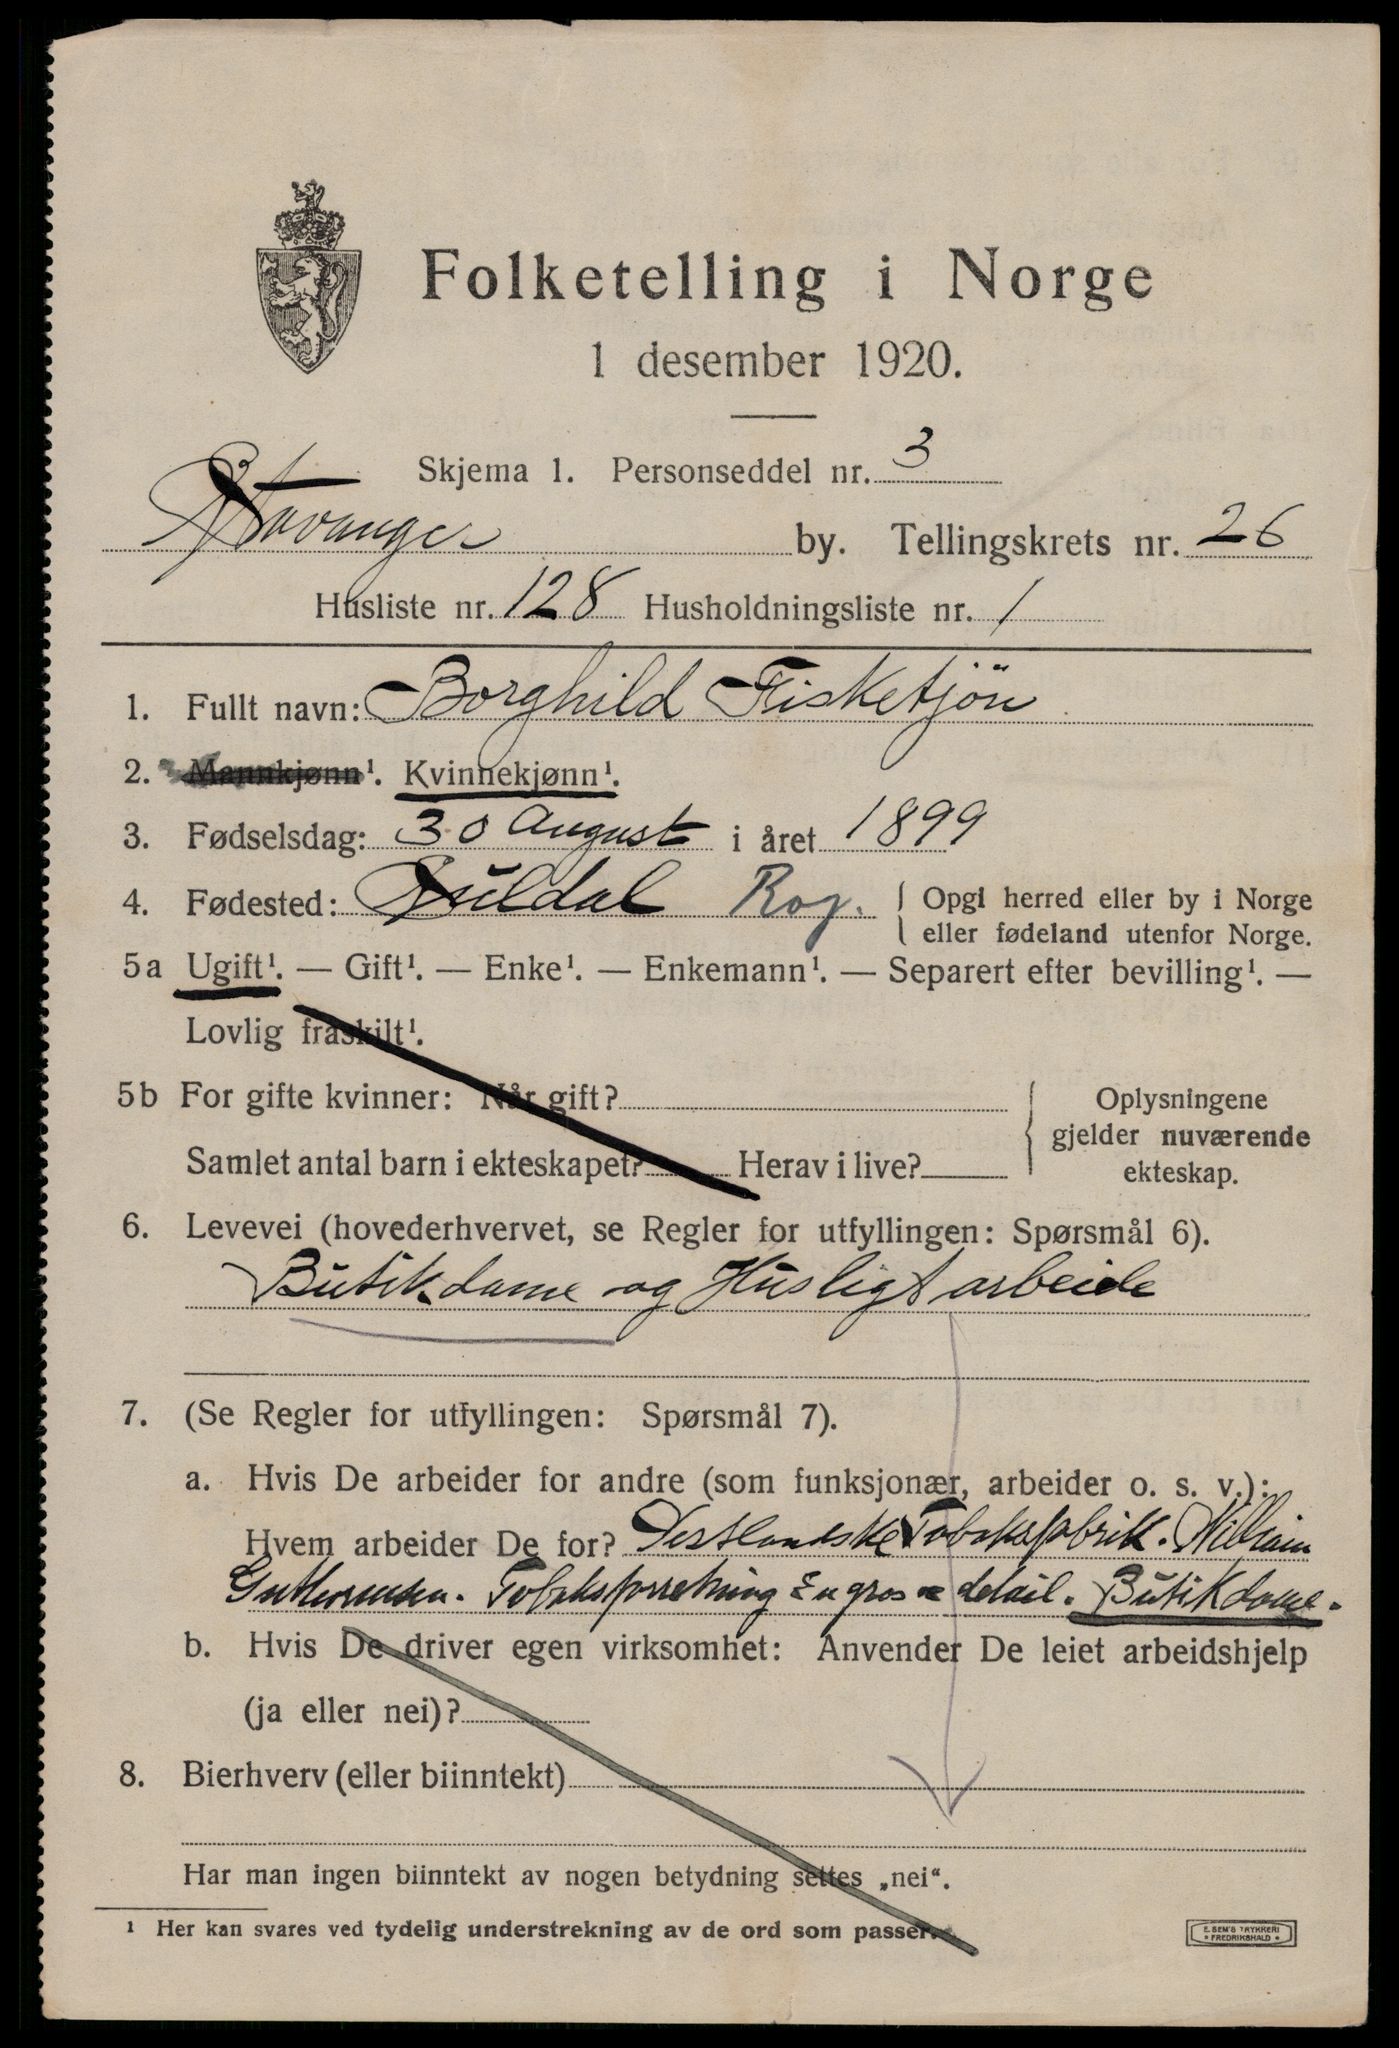 Folketelling i Norge
1 desember 1920.
Skjema 1. Personseddel nr. 3
Stavanger by. Tellingskrets nr. 26
Husliste nr. 128 Husholdningsliste nr. 1
1. Fullt navn: Borghild Fisketjön
2. Mannkjønn¹. Kvinnekjønn¹.
3. Fødselsdag: 30 August i året 1899
4. Fødested: Suldal Rog. { Opgi herred eller by i Norge
eller fødeland utenfor Norge.
5a Ugift¹. — Gift¹. — Enke¹. — Enkemann¹. — Separert efter bevilling¹. —
Lovlig fraskilt¹.
5b For gifte kvinner: Når gift?
Samlet antal barn i ekteskapet? Herav i live?
Oplysningene
gjelder nuværende
ekteskap.
6. Levevei (hovederhvervet, se Regler for utfyllingen: Spørsmål 6).
Butikdame og Husligt arbeide
7. (Se Regler for utfyllingen: Spørsmål 7).
a. Hvis De arbeider for andre (som funksjonær, arbeider o. s. v.):
Hvem arbeider De for? Vestlandske Tobaksfabrik. William
Guttormsen. Tobaksforretning En gros en detail. Butikdame.
b. Hvis De driver egen virksomhet: Anvender De leiet arbeidshjelp
(ja eller nei)?
8. Bierhverv (eller biinntekt)
Har man ingen biinntekt av nogen betydning settes „nei“.
¹ Her kan svares ved tydelig understrekning av de ord som passer.
E. SEM'S TRYKKERI
FREDRIKSHALD